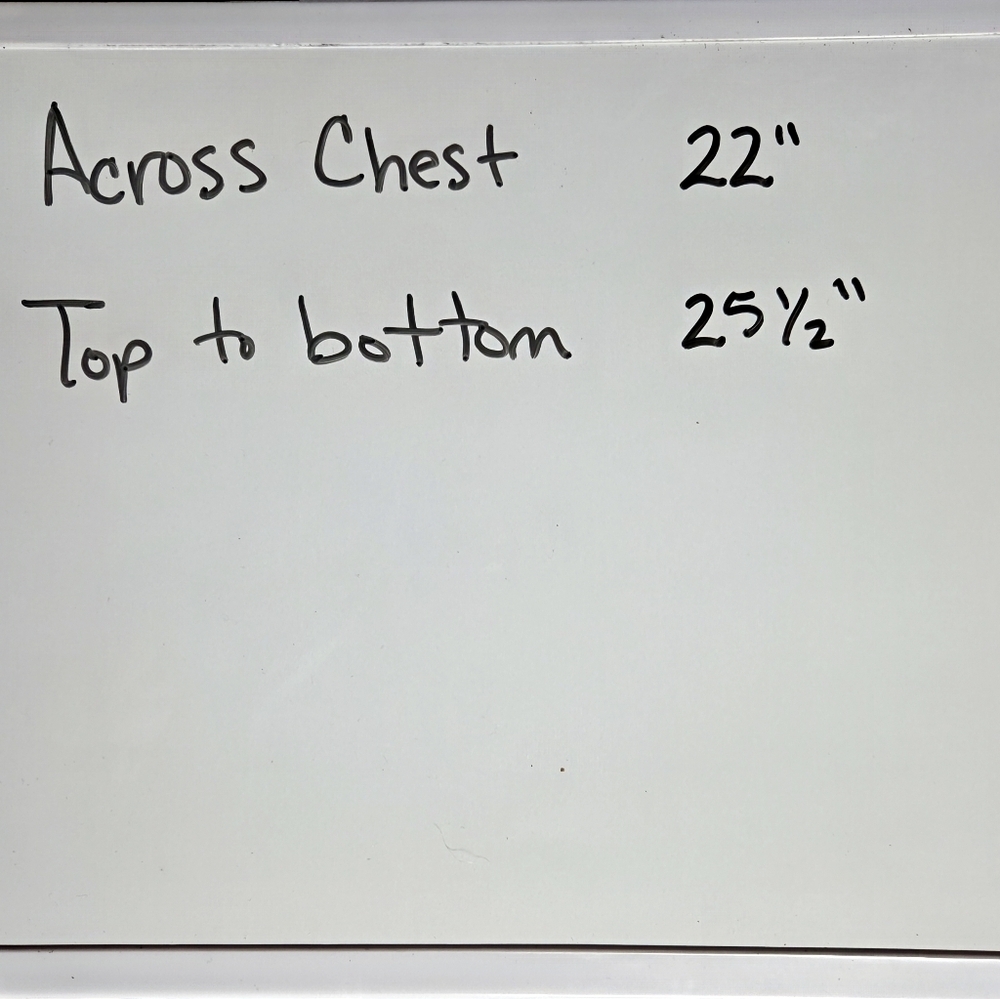 Across Chest 22"
Top to bottom 25 1/2"